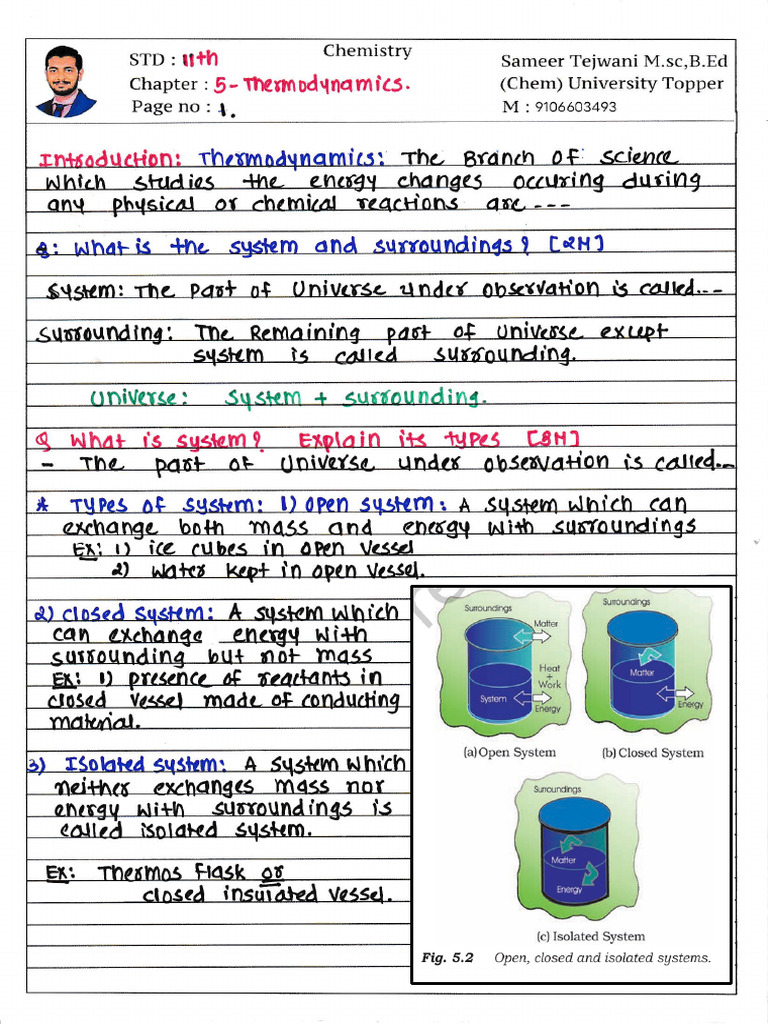 Chemistry
STD : 11th
Chapter : 5-Thermodynamics.
Page no : 1.
Sameer Tejwani M.sc,B.Ed
(Chem) University Topper
M : 9106603493
Introduction: Thermodynamics: The Branch of science
which studies the energy changes occuring during
any physical or chemical reactions are ---
Q: What is the system and surroundings? [2M]
System: The Part of Universe under observation is called---
Surrounding: The Remaining part of Universe except
system is called surrounding.
Universe: System + surrounding.
Q What is system? Explain its types [3M]
- The part of Universe under observation is called---
* Types of system: 1) open system: A system which can
exchange both mass and energy with surroundings
Ex: 1) ice cubes in open vessel
2) water kept in open vessel.
2) closed system: A system which
can exchange energy with
surrounding but not mass
Ex: 1) presence of reactants in
closed vessel made of conducting
material.
3) Isolated system: A system which
neither exchanges mass nor
energy with surroundings is
called isolated system.
Ex: Thermos flask or
closed insulated vessel.
Surroundings
Matter
Heat
+
Work
System
Energy
(a) Open System
Surroundings
Matter
Energy
(b) Closed System
Surroundings
Matter
Energy
(c) Isolated System
Fig. 5.2 Open, closed and isolated systems.